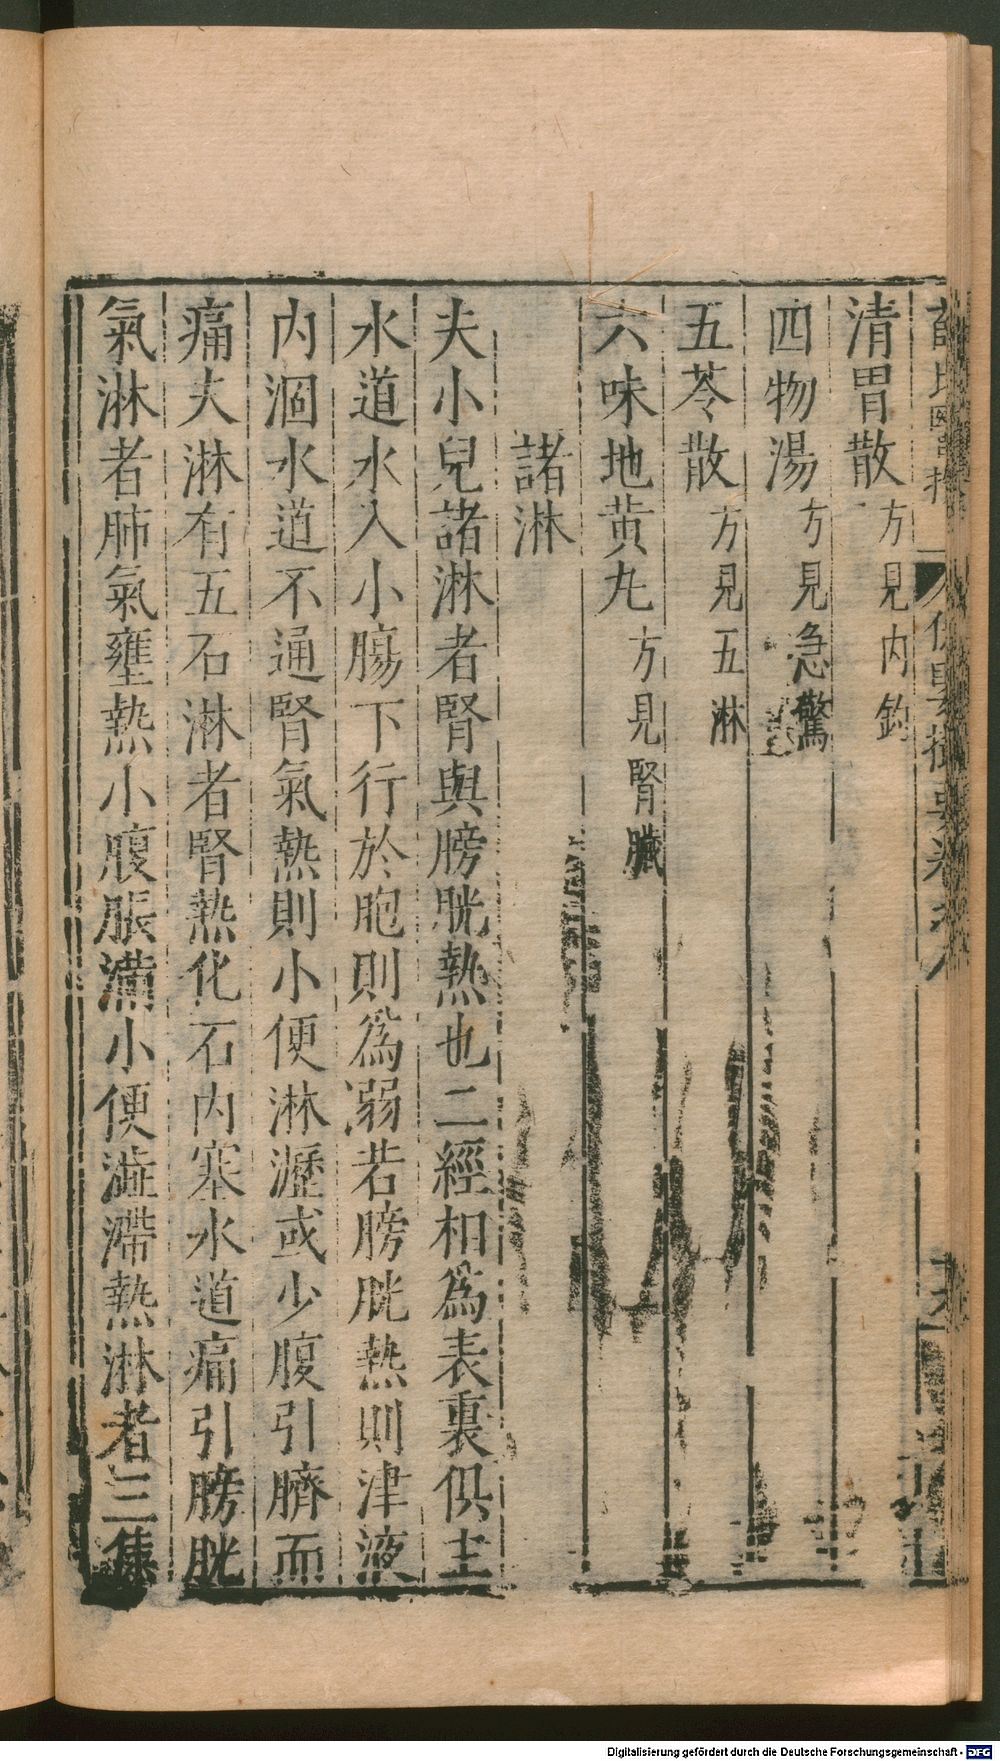 清胃散方見内鈞
四物湯方見急驚
五苓散方見五淋
六味地黄丸方見腎臟
諸淋
夫小兒諸淋者腎與膀胱熱也二經相爲表裏俱主
水道水入小腸下行於胞則爲溺若膀胱熱則津液
内涸水道不通腎氣熱則小便淋瀝或少腹引臍而
痛夫淋有五石淋者腎熱化石内塞水道痛引膀胱
氣淋者肺氣壅熱小腹脹滿小便澁滯熱淋者三焦
Digitalisierung gefördert durch die Deutsche Forschungsgemeinschaft - DFG